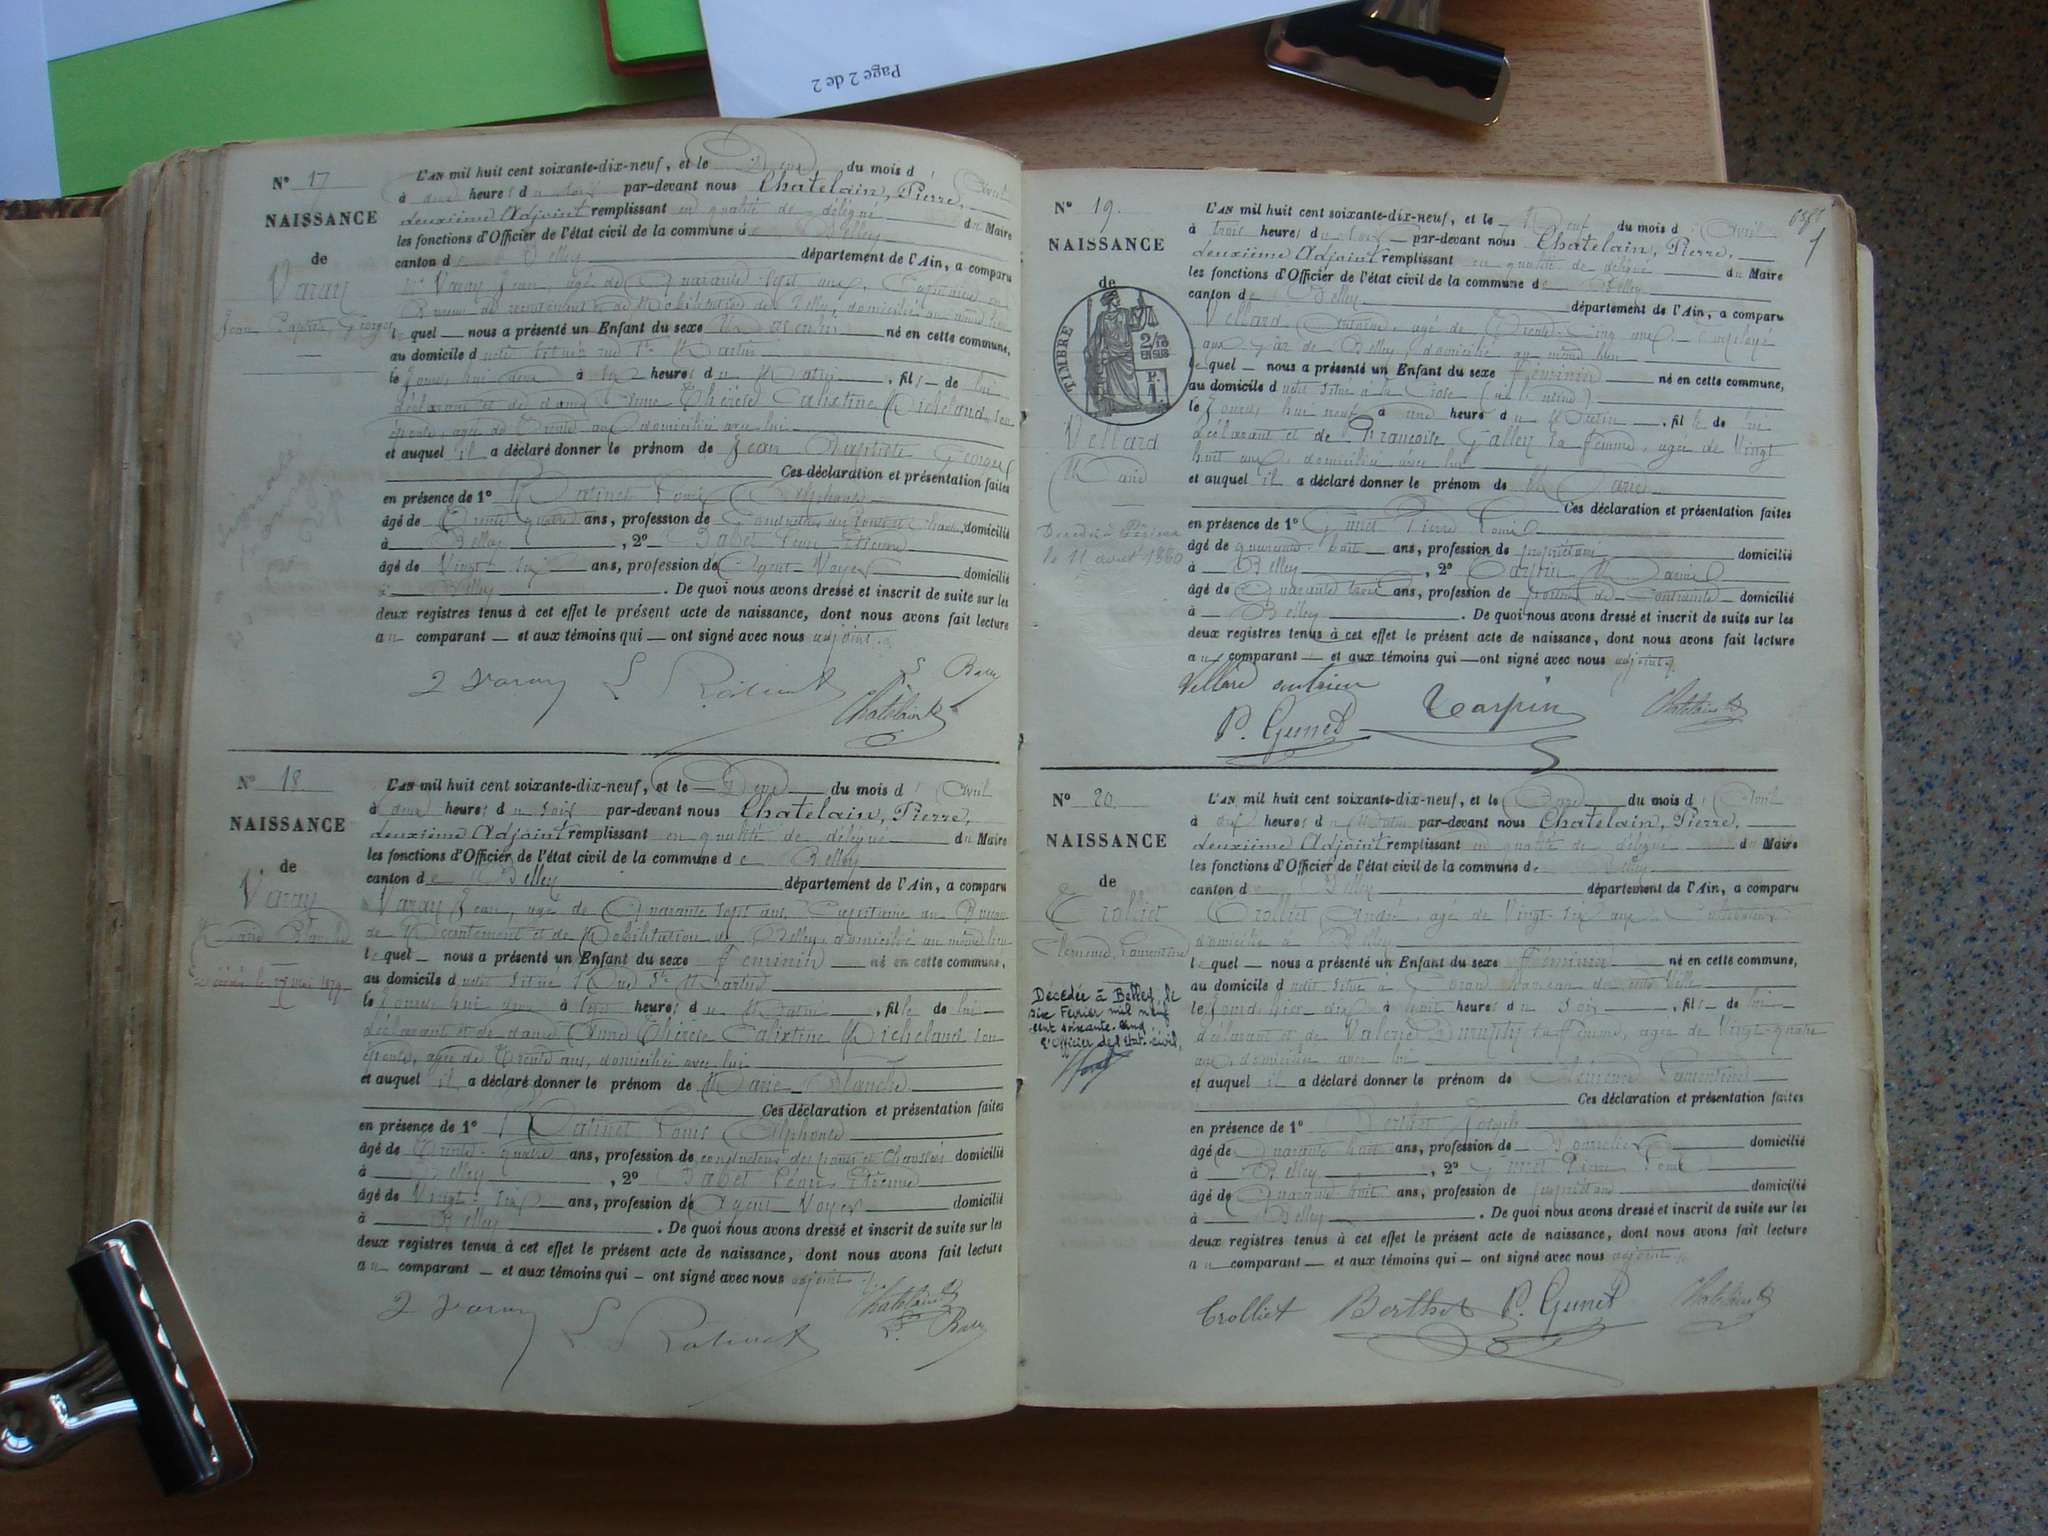 Page 2 de 2
N° 17
NAISSANCE
de
Varay
Jean Baptiste Georges
L'AN mil huit cent soixante-dix-neuf, et le Deux du mois d' Avril
à deux heures du soir par-devant nous Chatelain, Pierre,
deuxième Adjoint remplissant en qualité de délégué du Maire
les fonctions d'Officier de l'état civil de la commune de Belley
canton de Belley département de l'Ain, a comparu
Mr Varay Jean, agé de Quarante sept ans, Capitaine au
Bureau de recrutement et de Mobilisation de Belley, domicilié au même lieu
lequel nous a présenté un Enfant du sexe Masculin né en cette commune,
au domicile d situé rue St Martin
le Jourd'hui deux à heures du Matin, fils de lui
déclarant et de dame Anne Thérèse Calixtine Richeland, son
épouse, agée de Trente ans domiciliée avec lui
et auquel il a déclaré donner le prénom de Jean Baptiste Georges
Ces déclaration et présentation faites
en présence de 1° Ratinet Louis Alphonse
âgé de Trente quatre ans, profession de Conducteur des Ponts et Chaussées domicilié
à Belley, 2° Babet Léon Etienne
âgé de Vingt-six ans, profession de Agent-Voyer domicilié
à Belley. De quoi nous avons dressé et inscrit de suite sur les
deux registres tenus à cet effet le présent acte de naissance, dont nous avons fait lecture
au comparant et aux témoins qui ont signé avec nous adjoint.
J Varay L Ratinet L Babet
Chatelain
N° 18
NAISSANCE
de
Varay
Marie Blanche
décédée le Mai 1879
L'AN mil huit cent soixante-dix-neuf, et le Deux du mois d' Avril
à deux heures du soir par-devant nous Chatelain, Pierre,
deuxième Adjoint remplissant en qualité de délégué du Maire
les fonctions d'Officier de l'état civil de la commune de Belley
canton de Belley département de l'Ain, a comparu
Varay Jean, agé de Quarante sept ans, Capitaine au Bureau
de Recrutement et de Mobilisation de Belley, domicilié au même lieu
lequel nous a présenté un Enfant du sexe Féminin né en cette commune,
au domicile d situé Rue St Martin
le Jourd'hui deux à sept heures du Matin, fille de lui
déclarant et de dame Anne Thérèse Calixtine Richeland son
épouse, agée de Trente ans, domiciliée avec lui
et auquel il a déclaré donner le prénom de Marie Blanche
Ces déclaration et présentation faites
en présence de 1° Ratinet Louis Alphonse
âgé de Trente-quatre ans, profession de conducteur des ponts et Chaussées domicilié
à Belley, 2° Babet Léon Etienne
âgé de Vingt-six ans, profession de Agent Voyer domicilié
à Belley. De quoi nous avons dressé et inscrit de suite sur les
deux registres tenus à cet effet le présent acte de naissance, dont nous avons fait lecture
au comparant et aux témoins qui ont signé avec nous adjoint.
J Varay L Ratinet Chatelain
L. Babet
N° 19.
NAISSANCE
de
TIMBRE
2/10
EN SUS
Vellard
Marie
le 11 avril 1880
L'AN mil huit cent soixante-dix-neuf, et le Neuf du mois d' Avril
à trois heures du soir par-devant nous Chatelain, Pierre,
deuxième Adjoint remplissant en qualité de délégué du Maire
les fonctions d'Officier de l'état civil de la commune de Belley
canton de Belley département de l'Ain, a comparu
Vellard Antoine, agé de Trente-cinq ans, employé
au Gaz de Belley, domicilié au même lieu
lequel nous a présenté un Enfant du sexe féminin né en cette commune,
au domicile d situé à la
le Jourd'hui neuf à une heure du Matin, fille de lui
déclarant et de Françoise Galley sa femme, agée de Vingt
huit ans, domiciliée avec lui
et auquel il a déclaré donner le prénom de Marie
Ces déclaration et présentation faites
en présence de 1° Gunet Pierre Louis
âgé de quarante-huit ans, profession de propriétaire domicilié
à Belley, 2° Tarpin
âgé de Quarante trois ans, profession de porteur de Contrainte domicilié
à Belley. De quoi nous avons dressé et inscrit de suite sur les
deux registres tenus à cet effet le présent acte de naissance, dont nous avons fait lecture
au comparant et aux témoins qui ont signé avec nous adjoint.
Vellard antoine Tarpin Chatelain
P. Gunet
N° 20.
NAISSANCE
de
Trolliet
Clémence Laurentine
Décédée à Belley, le
six Février mil neuf
cent soixante-cinq
L'Officier de l'Etat-civil,
L'AN mil huit cent soixante-dix-neuf, et le Onze du mois d' Avril
à neuf heures du Matin par-devant nous Chatelain, Pierre,
deuxième Adjoint remplissant en qualité de délégué du Maire
les fonctions d'Officier de l'état civil de la commune de Belley
canton de Belley département de l'Ain, a comparu
Trolliet André, agé de Vingt-six ans, Cultivateur
domicilié à Belley
lequel nous a présenté un Enfant du sexe féminin né en cette commune,
au domicile d situé à de cette Ville
le Jour d'hier dix à huit heures du Soir, fille de lui
déclarant et de Valérie sa femme, agée de Vingt-quatre
ans, domiciliée avec lui
et auquel il a déclaré donner le prénom de Clémence Laurentine
Ces déclaration et présentation faites
en présence de 1° Berthet Joseph
âgé de Quarante huit ans, profession de Bourrelier domicilié
à Belley, 2° Gunet Pierre Louis
âgé de Quarante-huit ans, profession de propriétaire domicilié
à Belley. De quoi nous avons dressé et inscrit de suite sur les
deux registres tenus à cet effet le présent acte de naissance, dont nous avons fait lecture
au comparant et aux témoins qui ont signé avec nous adjoint.
Trolliet Berthet P. Gunet Chatelain